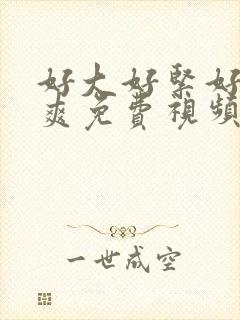 好大好緊好
爽免費視頻
一世成空